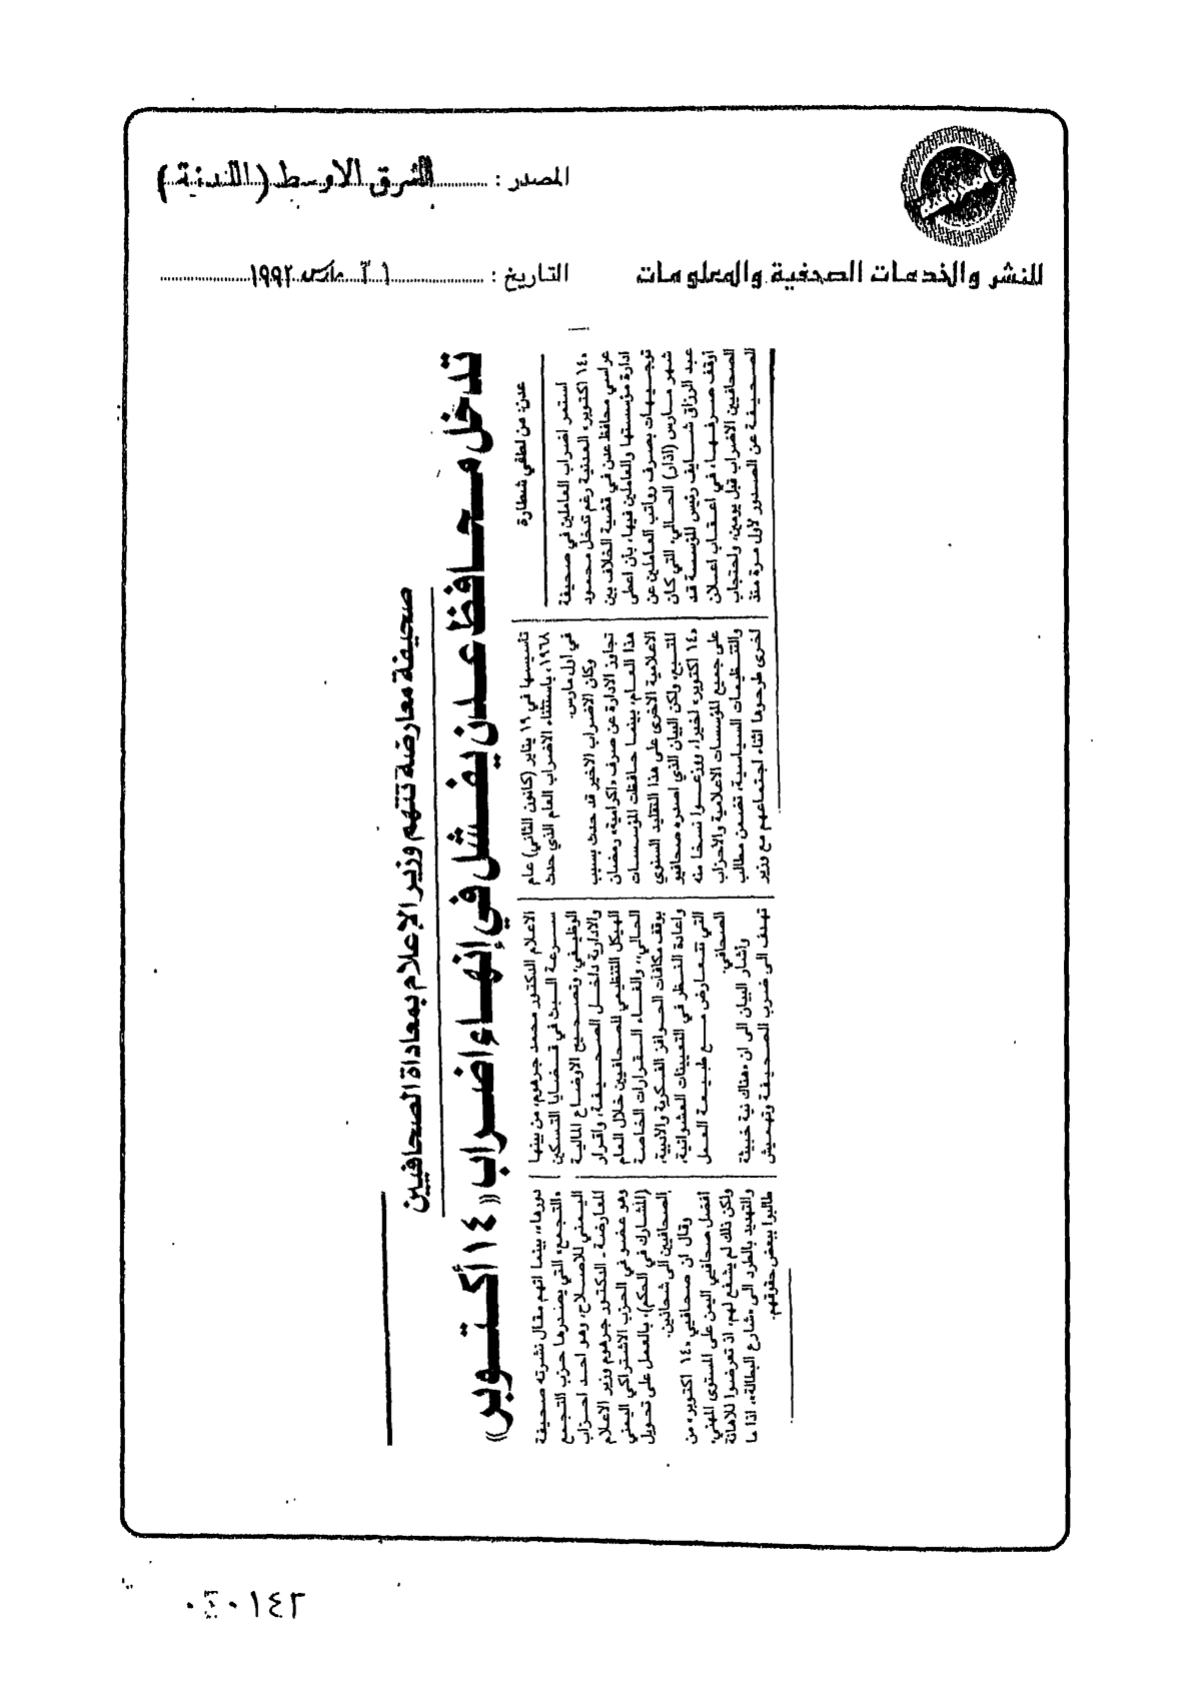 المصدر : الشرق الاوسط (اللندنية)
للنشر والخدمات الصحفية والمعلومات
التاريخ : مارس ١٩٩٢
صحيفة معارضة تتهم وزير الإعلام بمعاداة الصحافيين
تدخل محافظ عدن يفشل في إنهاء اضراب «١٤ أكتوبر»
عدن: من لطفي شطارة
استمر اضراب العاملين في صحيفة
«١٤ اكتوبر» العدنية رغم تدخل محمود
عراسي محافظ عدن في قضية الخلاف بين
ادارة مؤسستها والعاملين فيها، بأن اعطى
توجيهات بصرف رواتب العاملين عن
شهر مارس (اذار) الحالي، التي كان
عبد الرزاق شايف رئيس المؤسسة قد
أوقف صرفها، في اعقاب اعلان
الصحافيين الاضراب قبل يومين، واحتجاب
الصحيفة عن الصدور لأول مرة منذ
تأسيسها في ١٩ يناير (كانون الثاني) عام
١٩٦٨، باستثناء الاضراب العام الذي حدث
في أول مارس.
وكان الاضراب الاخير قد حدث بسبب
تجاوز الادارة عن صرف «اكرامية» رمضان
هذا العام، بينما حافظت المؤسسات
الاعلامية الاخرى على هذا التقليد السنوي
المتبع، ولكن البيان الذي اصدره صحافيو
«١٤ اكتوبر» اخيرا، ووزعوا نسخا منه
على جميع المؤسسات الاعلامية والأحزاب
والتنظيمات السياسية، تضمن مطالب
اخرى طرحوها اثناء اجتماعهم مع وزير
الاعلام الدكتور محمد جرهوم، من بينها
سرعة البت في قضايا التسكين
الوظيفي، وتصحيح الاوضاع المالية
والادارية داخل الصحيفة، واقرار
الهيكل التنظيمي للصحافيين خلال العام
الحالي، والغاء القرارات الخاصة
بوقف مكافآت الحوافز الفكرية والأدبية،
واعادة النظر في التعيينات العشوائية،
التي تتعارض مع طبيعة العمل
الصحافي.
وأشار البيان الى ان «هناك نية خبيثة
تهدف الى ضرب الصحيفة وتهميش
دورها»، بينما اتهم مقال نشرته صحيفة
«التجمع» التي يصدرها حزب التجمع
اليمني للاصلاح، وهو احد احزاب
المعارضة ـ الدكتور جرهوم وزير الاعلام
وهو عضو في الحزب الاشتراكي اليمني
(المشارك في الحكم)، بالعمل على تحويل
الصحافيين الى شحاتين.
وقال ان صحافيي «١٤ اكتوبر» من
افضل صحافيي اليمن على المستوى المهني،
ولكن ذلك لم يشفع لهم، اذ تعرضوا للاهانة
والتهديد بالطرد الى «شارع البطالة»، اذا ما
طالبوا ببعض حقوقهم.